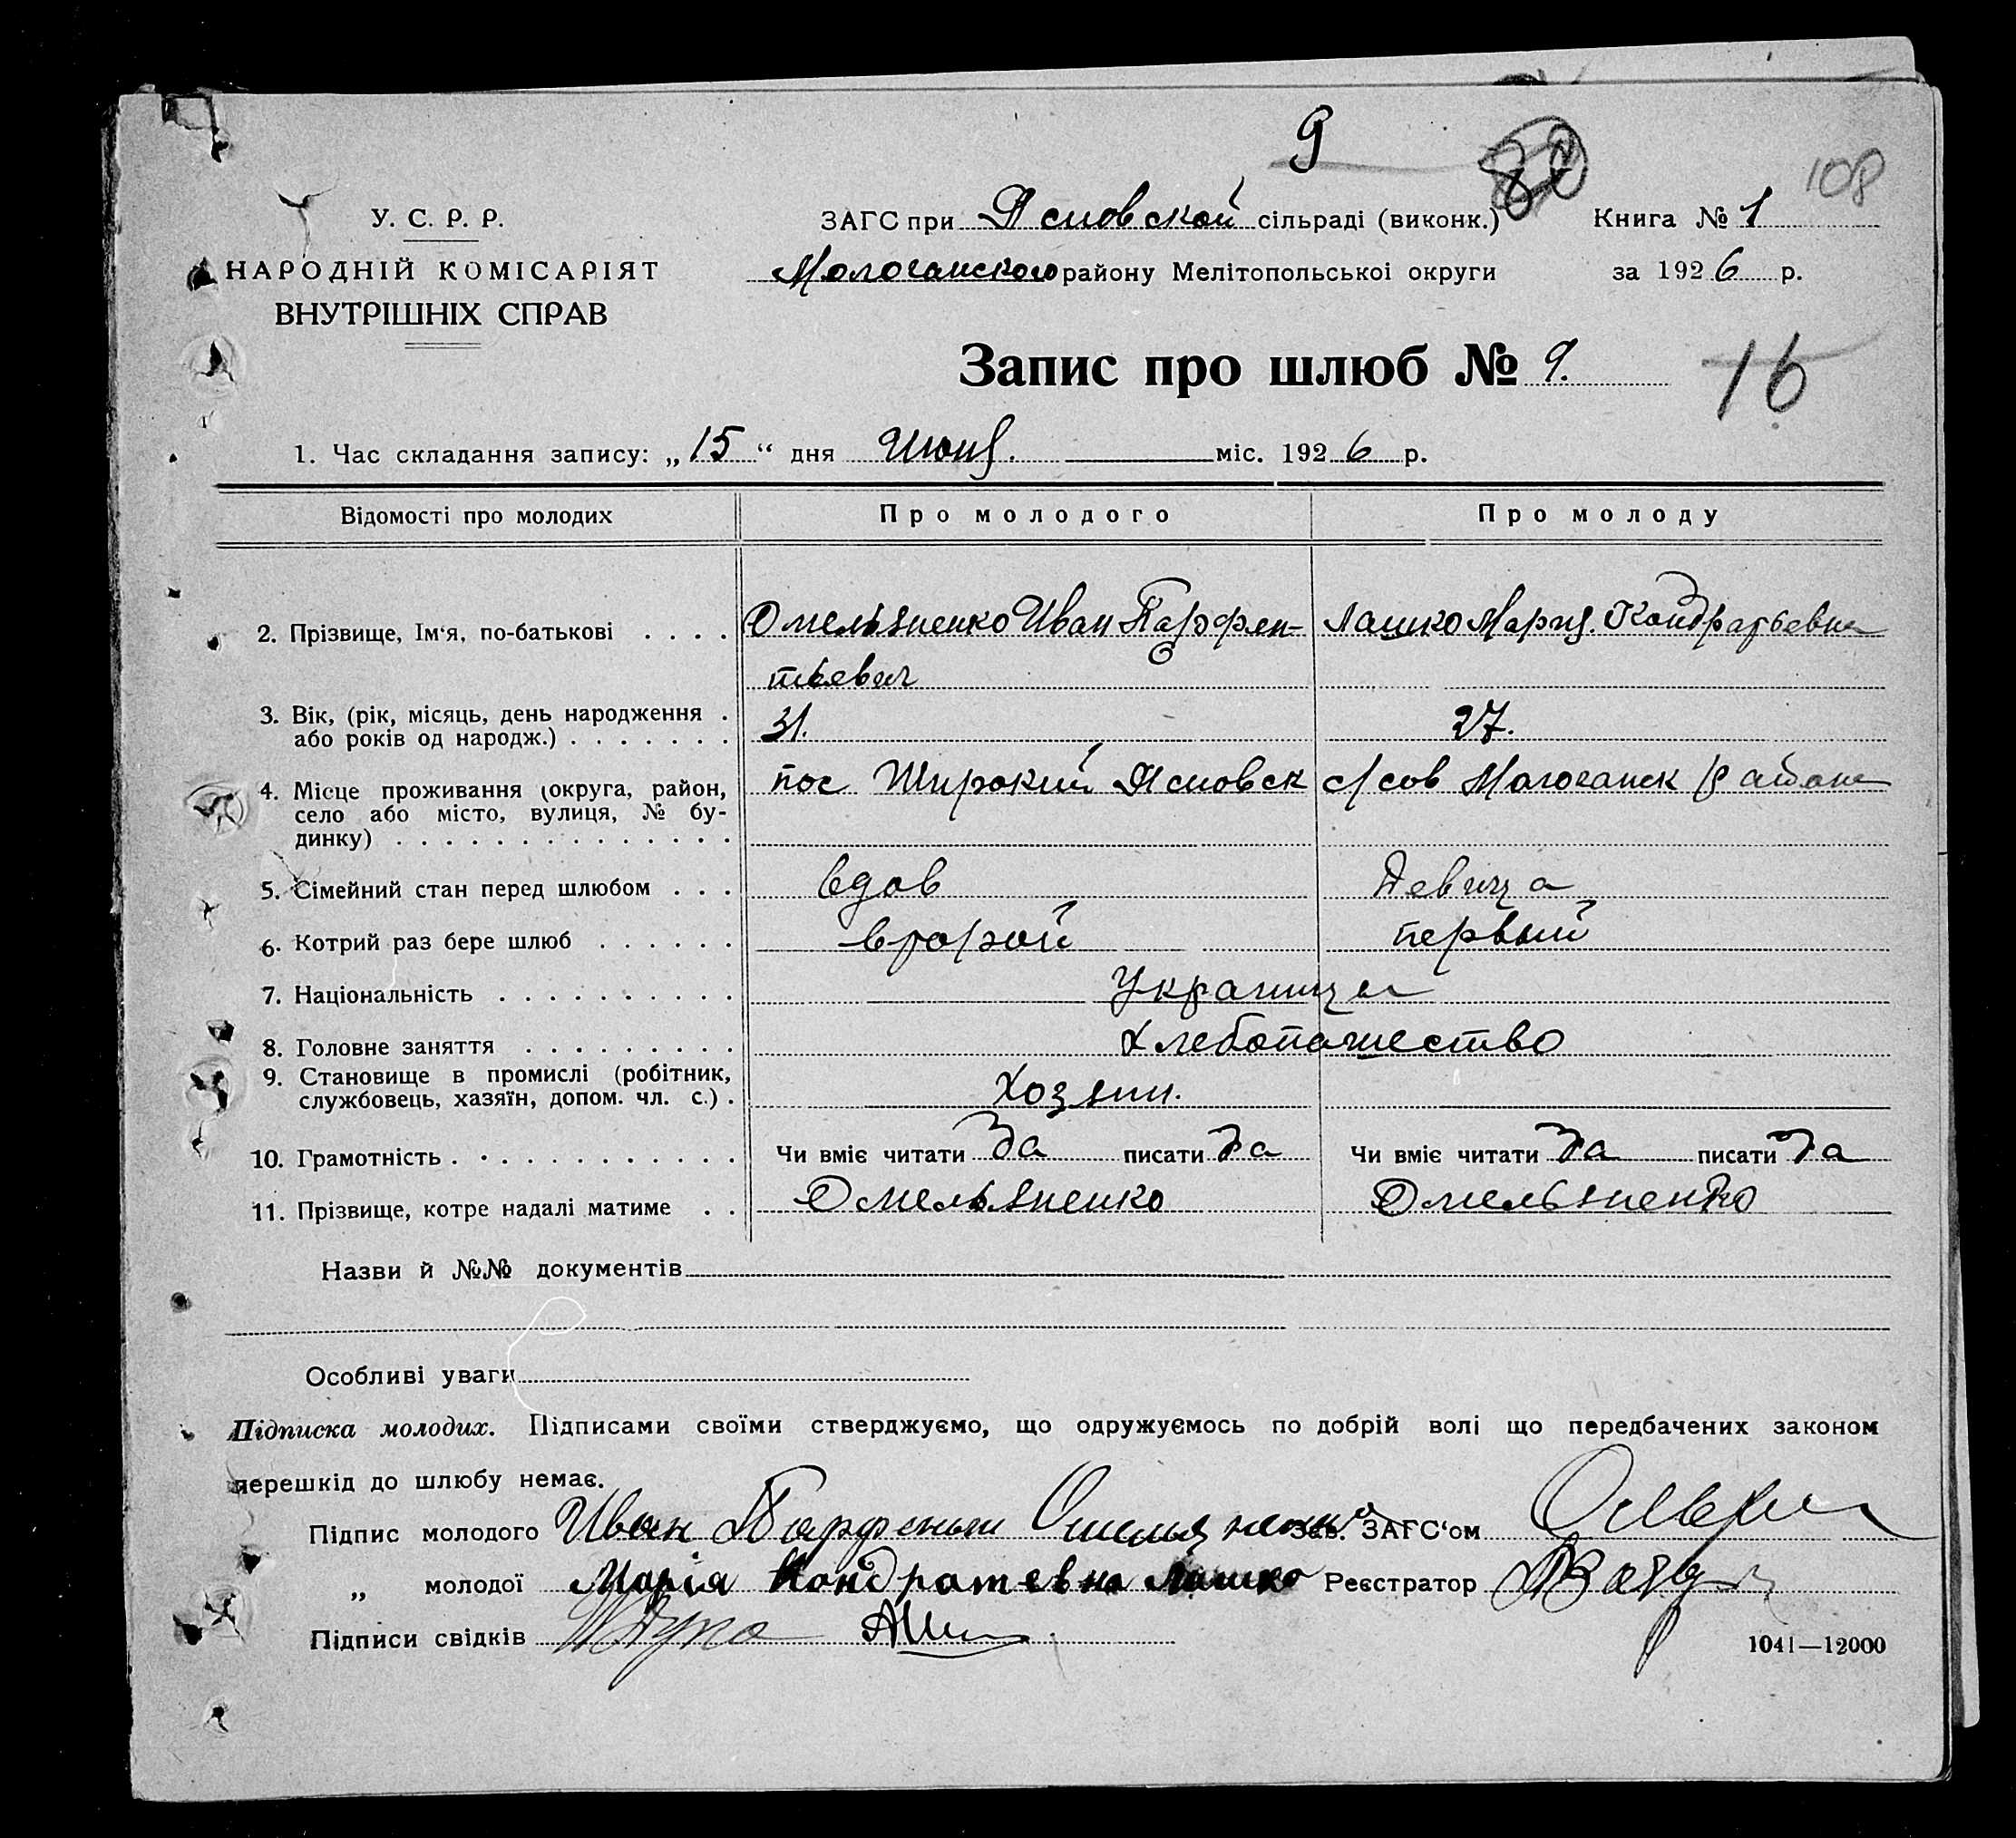 9
80 108
У. С. Р. Р. ЗАГС при Ясновской сільраді (виконк.) Книга № 1
НАРОДНІЙ КОМІСАРІЯТ Молочанского району Мелітопольської округи за 1926 р.
ВНУТРІШНІХ СПРАВ
Запис про шлюб № 9. 16
1. Час складання запису: „15“ дня Июня. міс. 1926 р.
Відомості про молодих Про молодого Про молоду
2. Прізвище, Ім‘я, по-батькові . . . . Омельяненко Иван Парфен- Лашко Мария. Кондратьевна
тьевич
3. Вік, (рік, місяць, день народження . 31. 27.
або років од народж.) . . . . . . .
4. Місце проживання (округа, район, пос Широкий Ясновск с/сов Молочанск района
село або місто, вулиця, № бу-
динку) . . . . . . . . . . . . . .
5. Сімейний стан перед шлюбом . . . вдов Девица
6. Котрий раз бере шлюб . . . . . . второй первый
7. Національність . . . . . . . . . . Украинцы
8. Головне заняття . . . . . . . . . Хлебопашество
9. Становище в промислі (робітник, Хозяин.
службовець, хазяїн, допом. чл. с.) .
10. Грамотність . . . . . . . . . . . . Чи вміє читати Да писати Да Чи вміє читати Да писати Да
11. Прізвище, котре надалі матиме . . Омельяненко Омельяненко
Назви й №№ документів
Особливі уваги
Підписка молодих. Підписами своїми стверджуємо, що одружуємось по добрій волі що передбачених законом
перешкід до шлюбу немає.
Підпис молодого Иван Парфеньш Омеляненко Зав. ЗАГС‘ом
„ молодої Марія Кондратевна Лашко Реєстратор
Підписи свідків
1041—12000